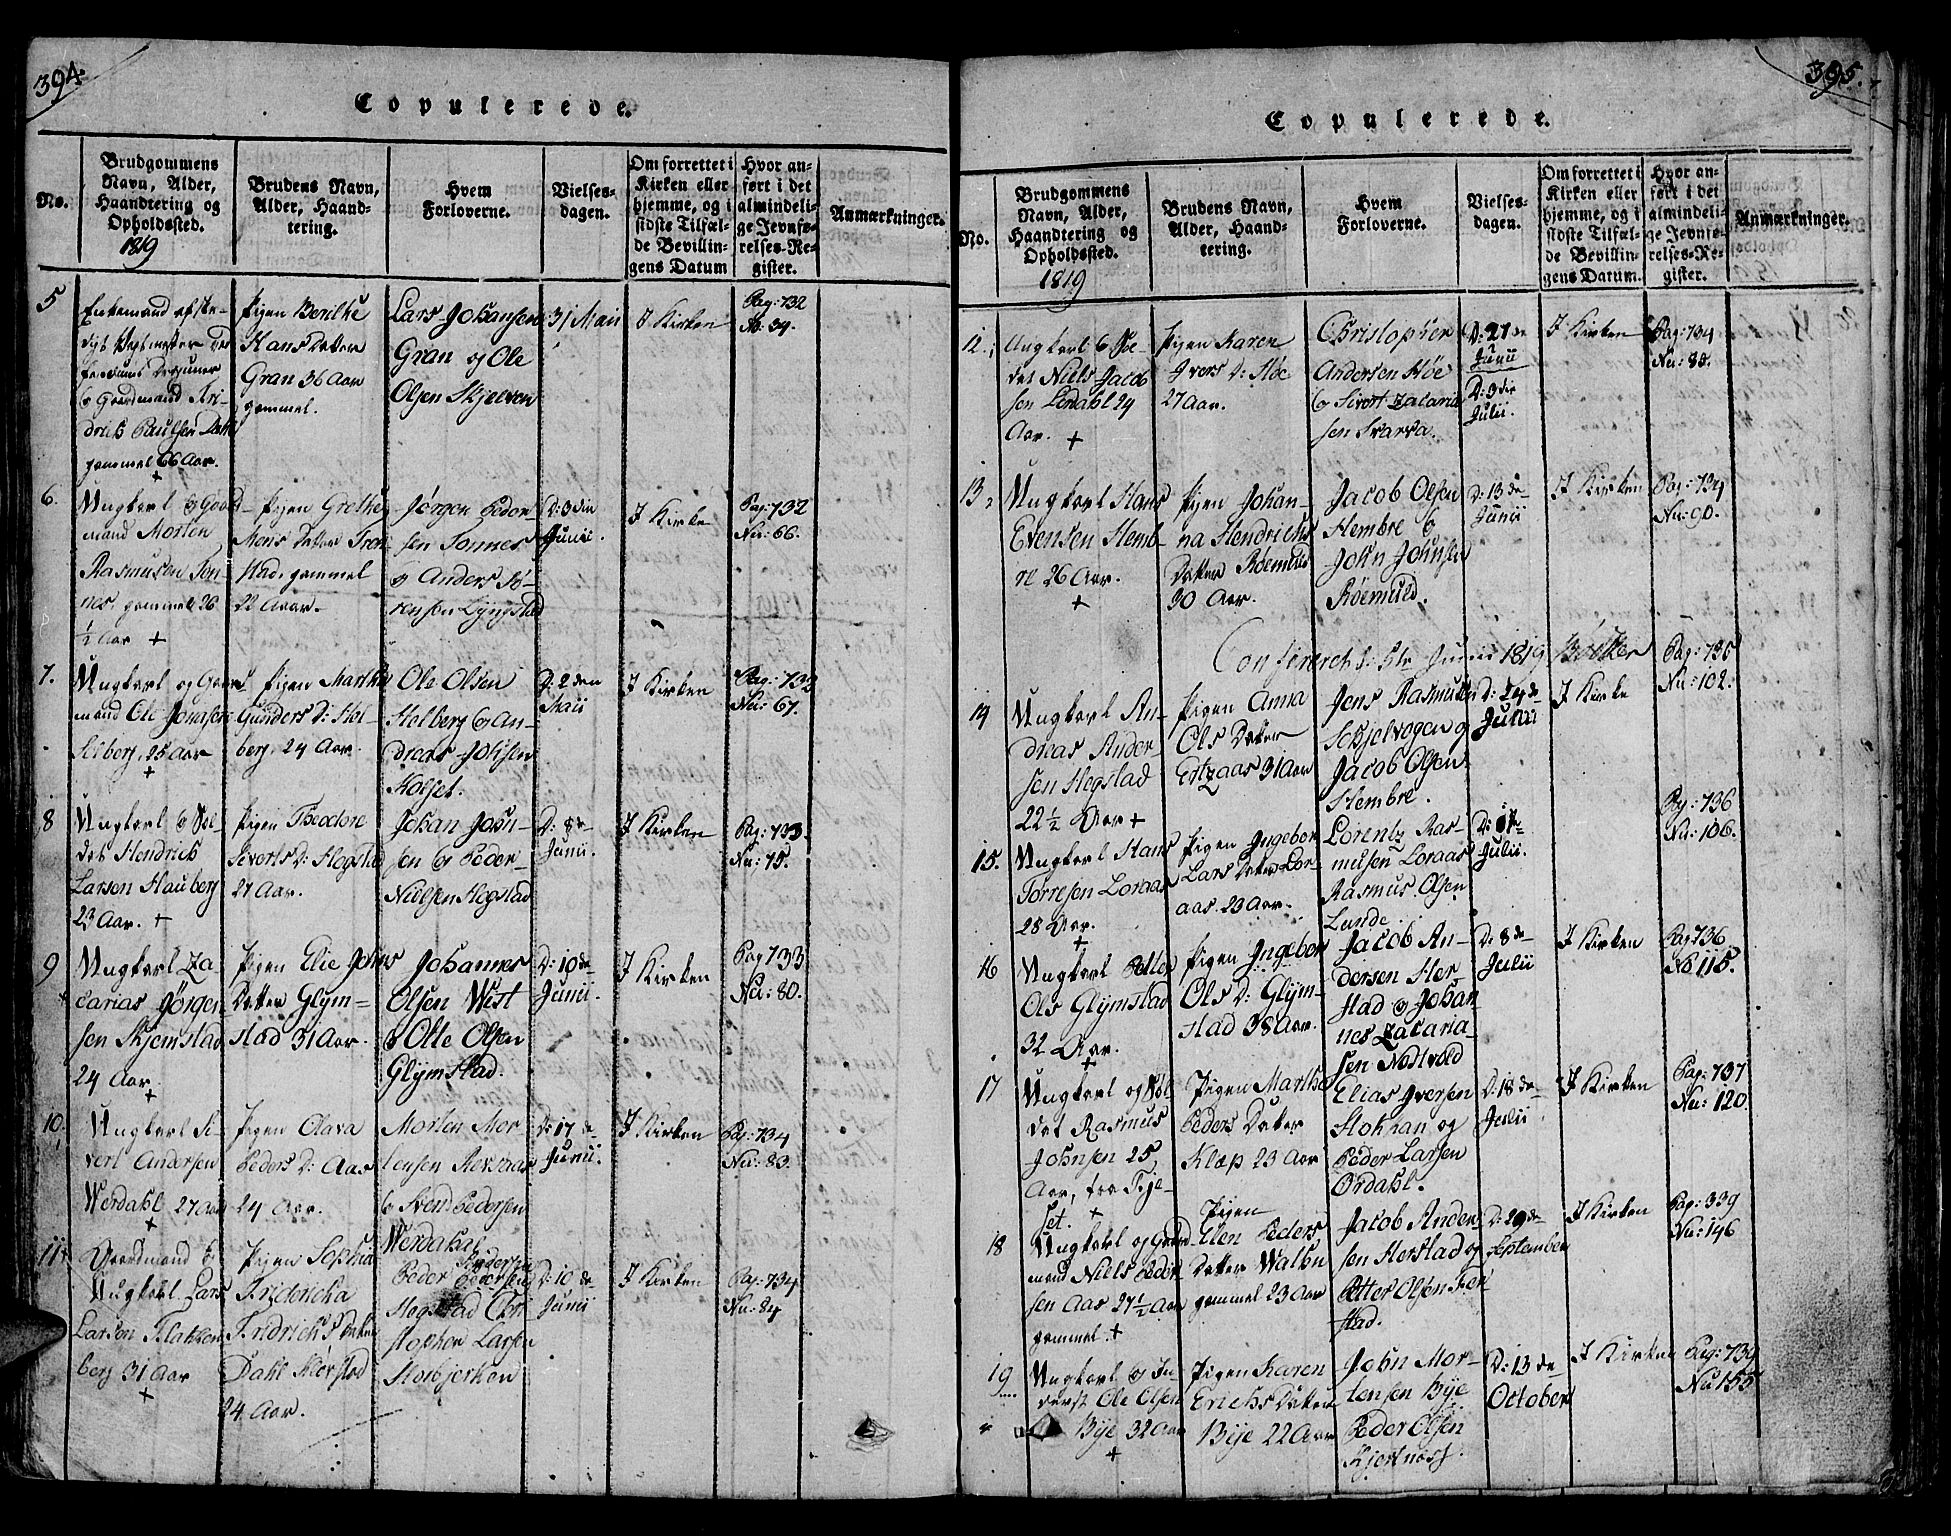 394.
Copulerede.
No.
Brudgommens
Navn, Alder,
Haandtering og
Opholdssted.
1819
Brudens Navn,
Alder, Haand-
tering.
Hvem
Forloverne.
Vielses-
dagen.
Om forrettet i
Kirken eller
hjemme, og i
sidste Tilfæl-
de Bevillin-
gens Datum
Hvor an-
ført i det
almindeli-
ge Jevnfø-
relses-Re-
gister.
Anmærkninger.
5
Enkemand
66 Aar.
Pigen Berithe
Hans Datter
Gran 36 Aar
gammel.
Lars Johansen
Gran og Ole
Olsen Skjelven
31 Maii
I Kirken
Pag: 732
No. 34.
6.
Ungkarl og Gaard-
mand Morten
Rasmusen Son-
nes, gammel 26
½ Aar +
Pigen Grethe
Mons Datter
gammel
22 Aar.
Jørgen Peder-
sen Sonnes
og Anders Sø-
rensen Lyngstad
D: 3die
Junii.
I Kirke
Pag: 732
Nu: 66.
7.
Ungkarl og Gaard-
mand Ole Jonasen
25 Aar
+
Pigen Martha
Gunders D: Hol-
berg, 24 Aar.
Ole Olsen
Holberg og An-
dreas Johsen
Kolset.
D: 2den
Maii
I Kirken
Pag: 732
Nu: 67.
8
Ungkarl og Sol-
dat Hendrich
Larsen Hauberg
23 Aar. +
Pigen Theodore
Siverts D: Hegstad
27 Aar.
Johan John-
sen og Peder
Nielsen Hegstad
D: 8de
Junii.
I Kirken
Pag: 733
Nu: 75.
9
Ungkarl Za-
carias Jørgen-
sen Skjemstad
24 Aar.
+
Pigen Elie Johns
Datter Glym-
stad 31 Aar.
Johannes
Olsen West
og Olle Olsen
Glymstad.
D: 10de
Junii.
I Kirken
Pag 733
Nu: 80.
10.
Ungkarl Si-
vert Andersen
Werdahl 27 Aar
+
Pigen Olava
Peders D: Aas
24 Aar.
Morten Mor
tensen Revaas
og Svend Pedersen
Werdahl
D: 17de
Junii.
I Kirken
Pag: 734
Nu: 83.
11
Gaardmand &
Ungkarl Lars
Larsen Flakken
berg 31 Aar
+
Pigen Sophia
Fridericha
Fridrichs
Dahl
24 Aar.
Peder Pedersen
Hegstad Chri
stopher Larsen
Storbjerken
D: 10de
Junii
I Kirken
Pag: 734
Nu: 84
395.
Copulerede.
No.
Brudgommens
Navn, Alder,
Haandtering og
Opholdssted.
1819
Brudens Navn,
Alder, Haand-
tering.
Hvem
Forloverne.
Vielses-
dagen.
Om forrettet i
Kirken eller
hjemme, og i
sidste Tilfæl-
de Bevillin-
gens Datum.
Hvor an-
ført i det
almindeli-
ge Jevnfø-
relses-Re-
gister.
Anmærkninger.
12.
Ungkarl & Sol-
dat Niels Jacob
sen Lerdahl 24
Aar. +
Pigen Karen
Ivers D: Høe
27 Aar.
Christopher
Andersen Høe
& Sivert Zacaria
sen Svarva.
D: 27de
Junii
D: 3die
Julii.
I Kirken
Pag: 734
Nu: 88.
13
Ungkarl Hans
Evensen Hemb-
re 26 Aar.
+
Pigen Johan-
na Hendrichs
Datter Røemuld
30 Aar.
Jacob Olsen
Hembre &
John Johnsen
Røemuld.
D: 13de
Junii
I Kirken
Pag: 734
Nu: 90.
Confererch d: 5te Junii 1819
14
Ungkarl An-
dreas Ander
sen Hegstad
22 ½ Aar +
Pigen Anna
Ols Datter
Estzaas 31 Aar
Jens Rasmusen
Schjelvogen og
Jacob Olsen
Hembre.
D: 24de
Julii
I Kirke
Pag: 735
Nu: 102.
15.
Ungkarl Hans
Torresen Loraas
28 Aar.
+
Pigen Ingebor
Lars Datter Lor-
aas 23 Aar.
Lorentz Ras-
musen Loraas
Rasmus Olsen
Lunde
Julii.
Pag: 736
Nu: 106.
16
Ungkarl Petter
Ols Glymstad
32 Aar.
+
Pigen Ingebor
Ols D: Glym-
stad 38 Aar.
Jacob An-
dersen Her-
stad & Johan
nes Zacaria-
sen Nestvold
D: 8de
Julii
I Kirken
Pag 736
No 115.
17
Ungkarl og Sol
dat Rasmus
Johnsen 25
Aar, fra Tije-
set. +
Pigen Martha
Peders Datter
Klæp 23 Aar
Elias Iversen
Stokhan og
Peder Larsen
Ørdahl.
D: 18de
Julii
I Kirken
Pag: 737
Nu: 120.
18
Ungkarl og Gaard-
mand Niels Peder
sen Aas 27½ Aar
gammel. +
Pigen
Elen Peders
Datter Walbu
gammel 23 Aar
Jacob Ander
sen Herstad og
Petter Olsen Fer
stad.
D: 29de
September
I Kirken
Pag: 339
Nu: 146
19
Ungkarl og In
derst Ole Olsen
Bye 32 Aar
+
Pigen Karen
Erichs Datter
Bye 22 Aar
John Mor-
tensen Bye
Peder Olsen
Kjestnøst.
D: 13de
October
I Kirken
Pag: 739
Nu 155